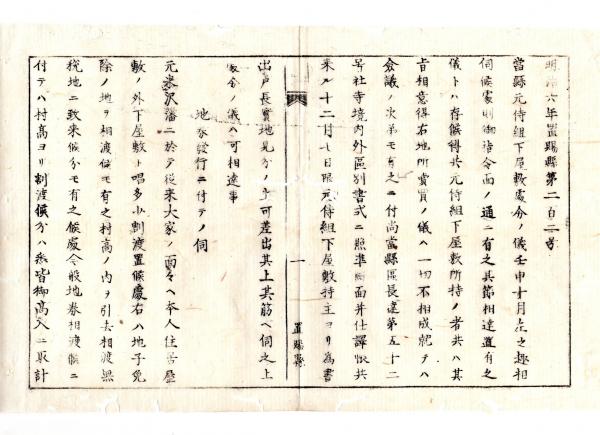 明治六年置賜縣第二百二号
當縣元侍組下屋敷處分ノ儀壬申十月在之趣相
伺候處則御指令面ノ通ニ有之其節相達置有之
儀トハ存候得共元侍組下屋敷所持ノ者共ハ其
旨相意得右地所賣買ノ儀ヘ一切不相成就テハ
會議ノ次第モ有之ニ付尚當縣區長達第五十二
号社寺境内外區別書式ニ照準圖面并仕譯帳共
来ル十二月七日限元侍組下屋敷持主ヨリ為書
出戸長實地見分ノ上可差出其上其筋ヘ伺之上
處分ノ儀ハ可相達事
地券發行ニ付テノ伺
元米沢藩ニ於テ従来大家ノ面々ヘ本人住居屋
敷ノ外下屋敷ト唱多少割渡置候處右ハ地子免
除ノ地ヲ相渡候モ有之村高ノ内ヲ引去相渡無
税地ニ致来候分モ有之候處今般地券相渡候ニ
付テハ村高ヨリ割渡候分ハ悉皆御高入ニ取計
一
置賜縣